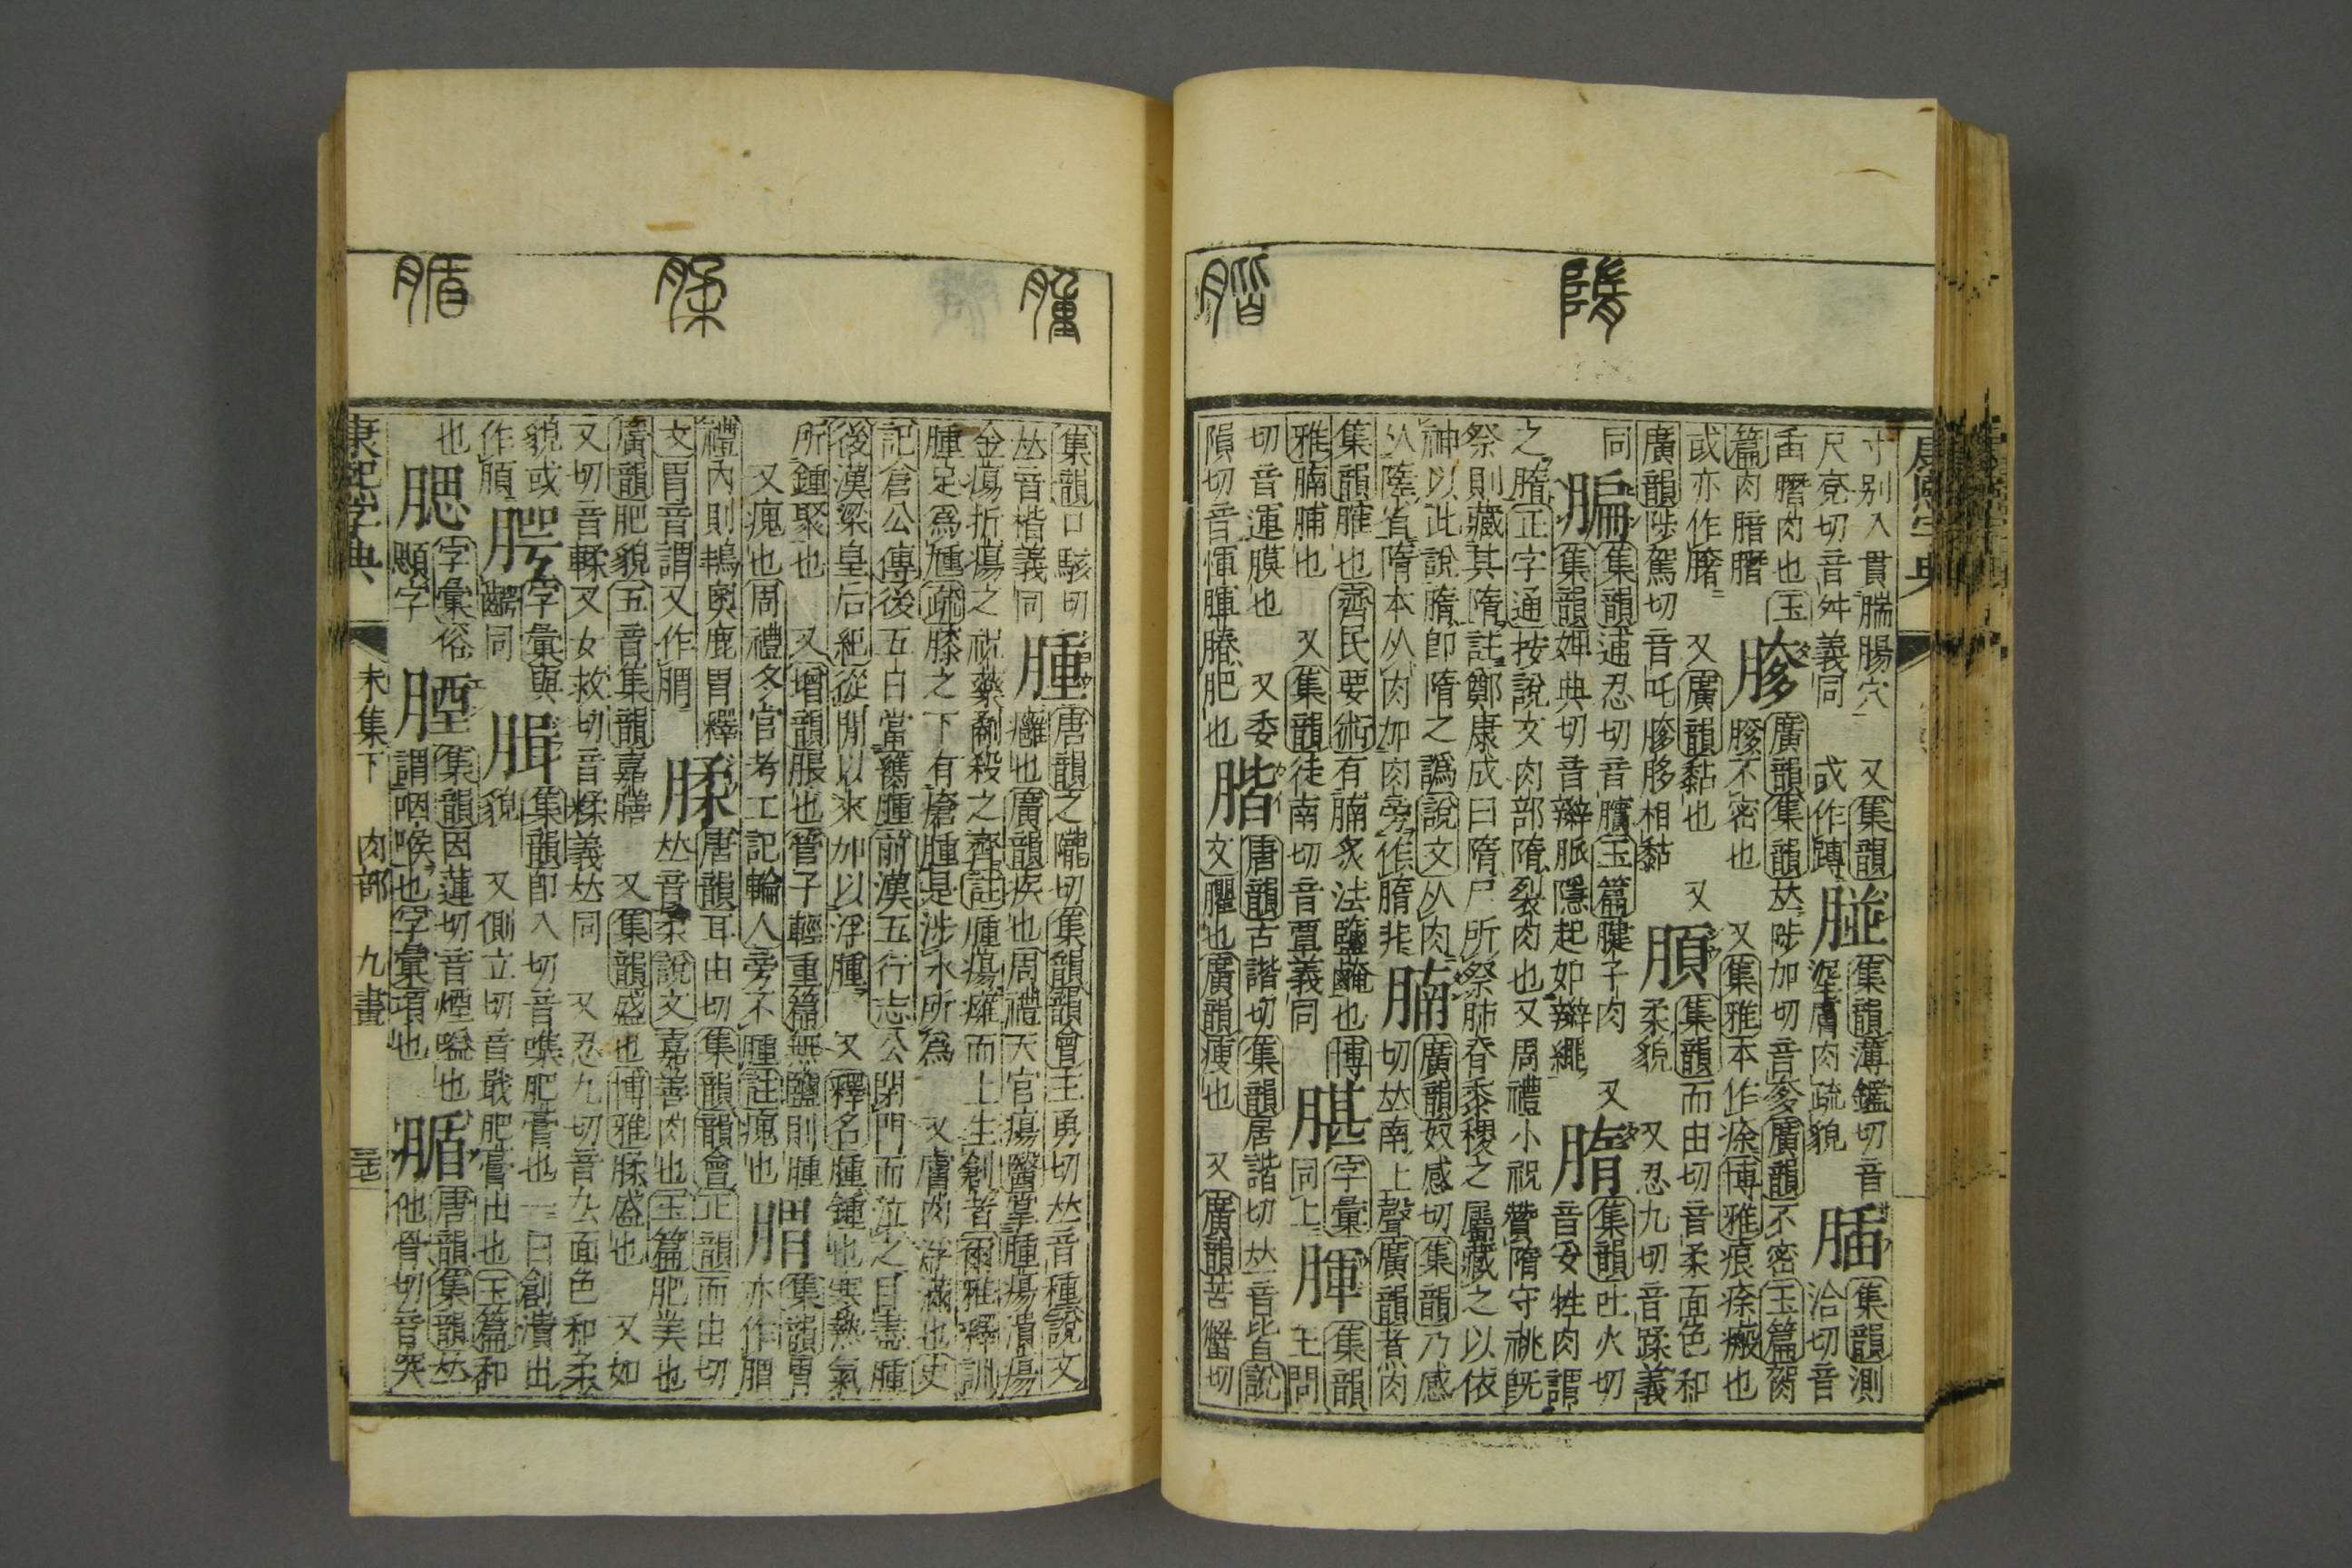 寸别入貫腨腸穴 又集韻
尺兗切音舛義同 或作䏝
䐒
集韻薄鑑切音
湴膚肉疏貌
腷
集韻測
洽切音
臿䐕肉也玉
篇肉䐕
或亦作䐗
䐒
廣韻集韻𠀤陟加切音奓廣韻不密玉篇䐒
䐒不密也 又集雅本作瘃博雅痕瘃瘢也
又廣韻黏也 又
廣韻陟駕切音吒䐒㢋相黏
腬
集韻而由切音柔面色和
柔貌 又忍九切音蹂義
同
腷
集韻逋忍切音臏玉篇腱子肉 又
集韻婢典切音辮脈隱起如辮繩
隋
集韻吐火切
音妥牲肉謂
之隋正字通按說文肉部隋裂肉也又周禮小祝贊隋守祧旣
祭則藏其隋註鄭康成曰隋尸所祭肺脊黍稷之屬藏之以依
神以此說隋卽隋之譌說文从肉
从隓省隋本从肉加肉旁作隋非
腩
廣韻奴感切集韻乃感
切𠀤南上聲廣韻煮肉
集韻臛也齊民要術有腩炙法鹽醃也博
雅腩脯也 又集韻徒南切音覃義同
腜
字彙
同上
腪
集韻
王問
切音運膜也 又委
隕切音惲腪賰肥也
腊
唐韻古諧切集韻居諧切𠀤音皆說
文臞也廣韻瘦也 又廣韻苦蟹切
集韻口駭切
𠀤音楷義同
腫
唐韻之隴切集韻韻會主勇切𠀤音種說文
癰也廣韻疾也周禮天官瘍醫掌腫瘍潰瘍
金瘍折瘍之祝藥劀殺之齊註腫瘍癰而上生創者爾雅釋訓
腫足爲尰疏膝之下有瘡腫是涉水所爲 又膚肉浮滿也史
記倉公傳後五日當䑁腫前漢五行志公閉門而泣之目盡腫
後漢梁皇后紀從閒以來加以浮腫 又釋名腫鍾也寒熱氣
所鍾聚也 又增韻脹也管子輕重篇無鹽則腫
又瘣也周禮冬官考工記輪人旁不腫註瘣也
䐔
集韻胃
亦作䐔
禮內則鴇奧鹿胃釋
文胃音謂又作䐔
腬
唐韻耳由切集韻韻會正韻而由切
𠀤音柔說文嘉善肉也玉篇肥美也
廣韻肥貌五音集韻嘉膳 又集韻盛也博雅腬盛也 又如
又切音輮又女救切音糅義𠀤同 又忍九切音厹面色和柔
貌或
作腬
腭
字彙與
齶同
腢
集韻卽入切音㗱肥膏也一曰創潰出
貌 又側立切音戢肥膏出也玉篇和
也
腮
字彙俗
顋字
腪
集韻因蓮切音煙嗌也
謂咽喉也字彙項也
腯
唐韻集韻𠀤
他骨切音突
康熙字典
未集下 肉部 九畫